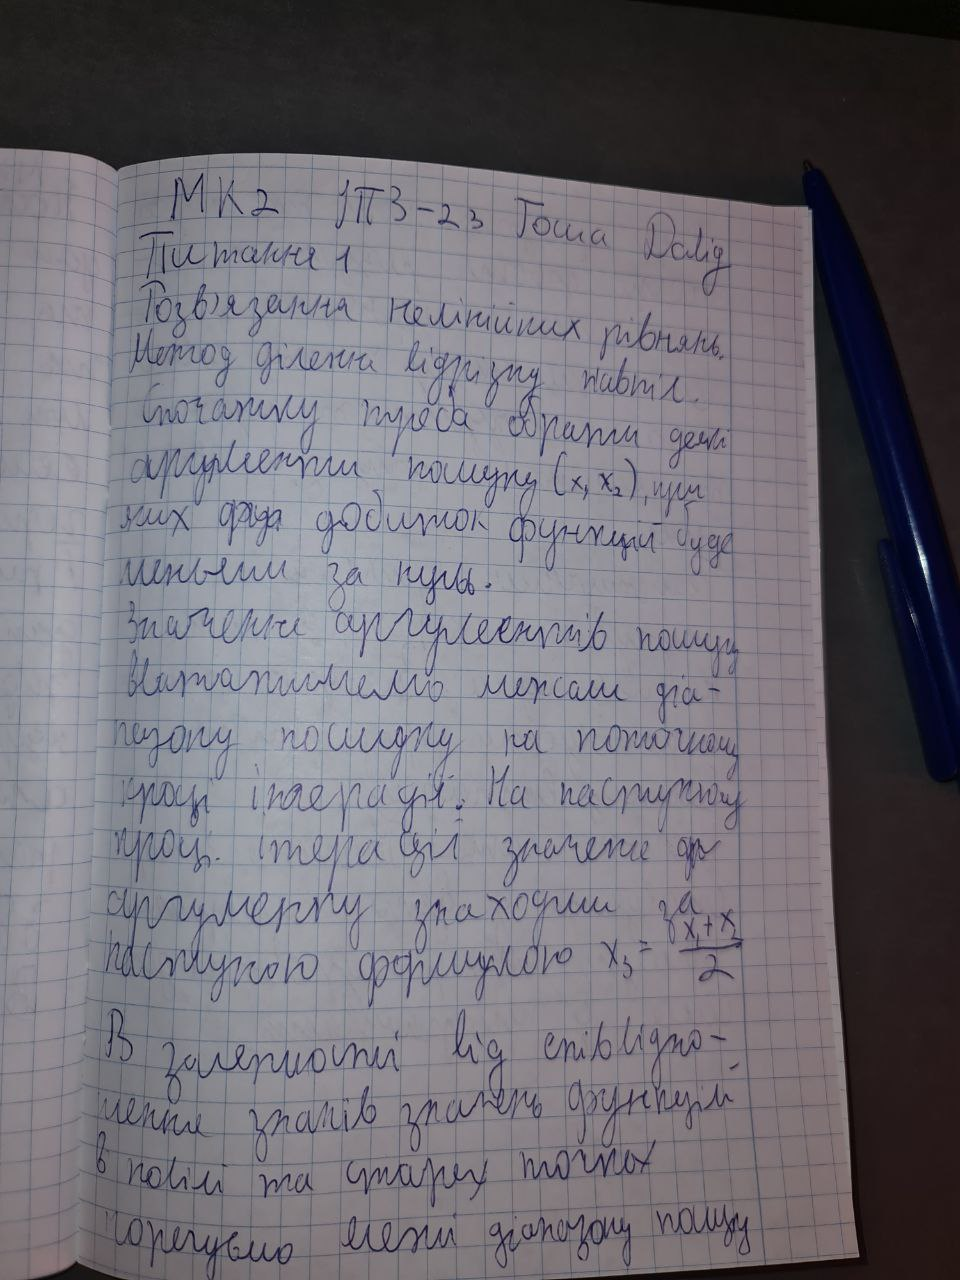 МК2 ІПЗ-23 Гоша Давід
Питання 1
Розв'язання нелінійних рівнянь.
Метод ділення відрізку навпіл.
Спочатку треба обрати деякі
аргументи пошуку (x₁ x₂), при
яких добуток функцій буде
меньшим за нуль.
Значення аргументів пошуку
вважатимемо межами діа-
пазону пошуку на поточному
кроці ітерації. На наступному
кроці ітерації значення
аргументу знаходим за
наступною формулою x₃ = (x₁+x₂)/2
В залежності від співвідно-
шення знаків значень функцій
в новій та старих точках
корегуємо межі діапазону пошуку